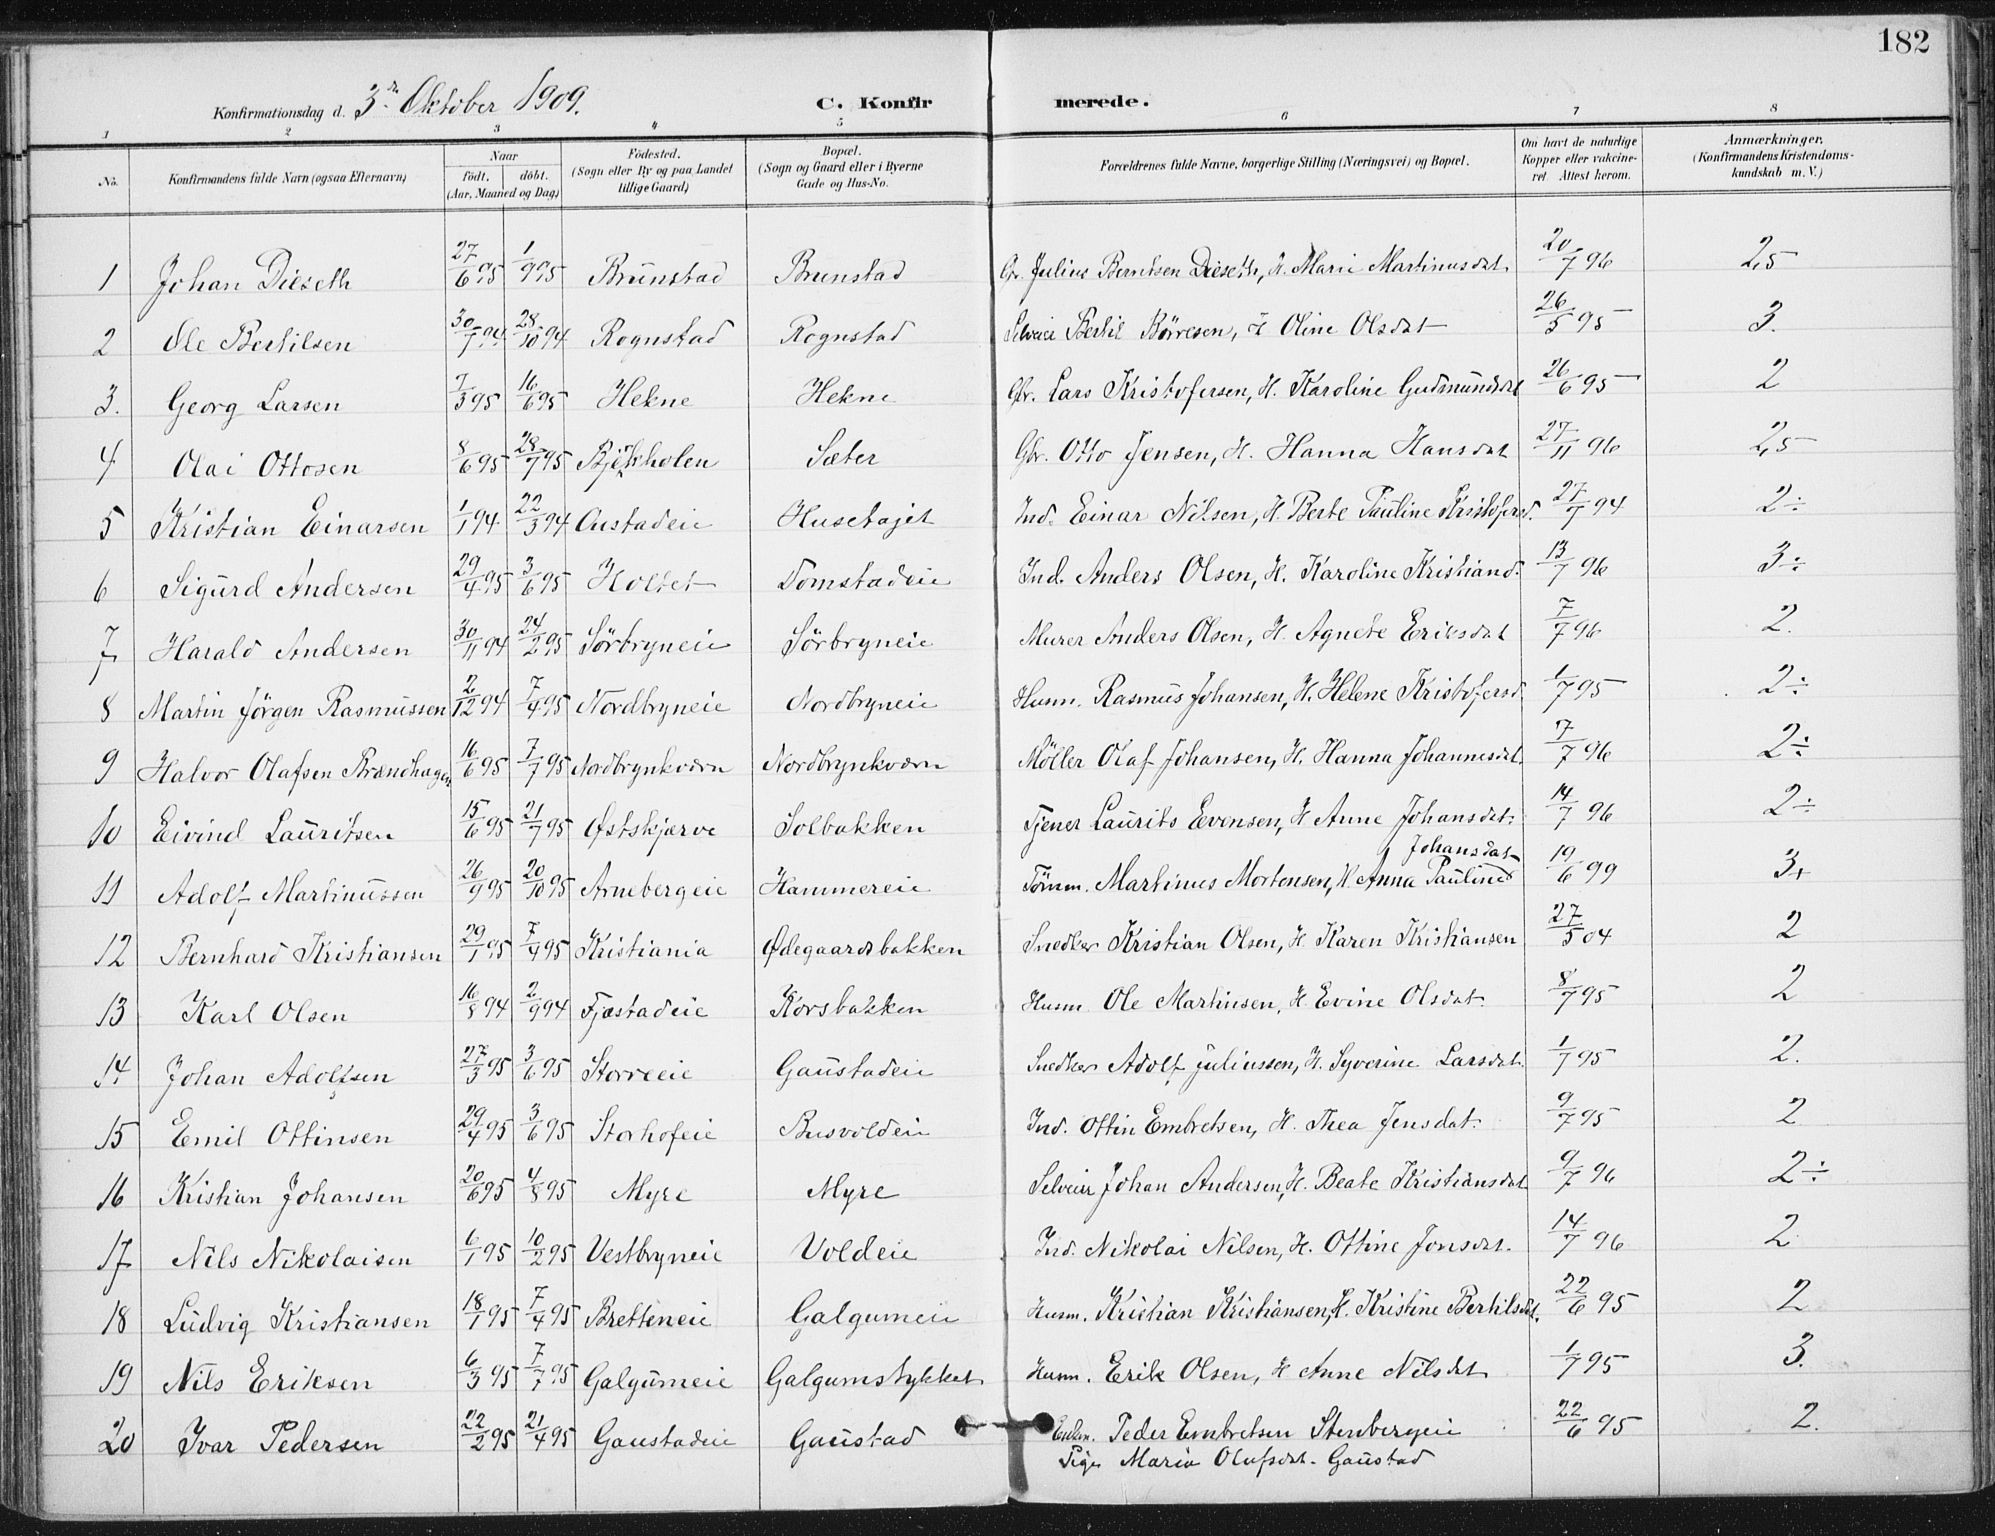 182
Konfirmationsdag d. 3die Oktober 1909. C. Konfirmerede.
1 2 3 4 5 6 7 8
No. Konfirmandens fulde Navn (ogsaa Efternavn) Naar født. døbt. (Aar, Maaned og Dag) Fødested. (Sogn eller By og paa Landet tillige Gaard) Bopæl. (Sogn og Gaard eller i Byerne Gade og Hus-No. Forældrenes fulde Navne, borgerlige Stilling (Næringsvei) og Bopæl. Om havt de naturlige Kopper eller vakcineret. Attest herom. Anmærkninger. (Konfirmandens Kristendomskundskab m. V.)
1 Johan Dieseth 27/6 95 1/9 95 Brunstad Brunstad Gbr. Julius Berntsen Dieseth, H. Marie Martinusdat. 20/7 96 2,5
2 Ole Bertilsen 30/7 94 28/10 94 Rognstad Rognstad Selveier Bertil Børresen, H Oline Olsdat 26/5 95 3.
3. Georg Larsen 7/3 95 16/6 95 Hekne Hekne Gbr. Lars Kristofersen, H. Karoline Gudmundsdat 26/6 95 2
4 Olai Ottosen 8/6 95 28/7 95 Bjerkholen Sæter Gbr. Otto Jensen, H. Hanna Hansdat 27/11 96 2,5
5 Kristian Einarsen 1/1 94 22/3 94 Austadeie Husetajet Ind. Einar Nilsen, H. Berte Pauline Kristofersd. 27/7 94 2÷
6 Sigurd Andersen 29/4 95 3/6 95 Holtet Tomstadeie Ind. Anders Olsen, H. Karoline Kristiansd. 13/7 96 3÷
7 Harald Andersen 30/11 94 24/2 95 Sörbryneie Sörbryneie Murer Anders Olsen, H. Agnete Eriksdat 7/7 96 2.
8 Martin Jörgen Rasmussen 2/12 94 7/4 95 Nordbryneie Nordbryneie Husm. Rasmus Johansen, H. Helene Kristofersd. 1/7 95 2÷
9 Halvor Olafsen Brændhagen 16/6 95 7/7 95 Nordbrynkværn Nordbrynkværn Møller Olaf Johansen, H. Hanna Johannesdat. 7/7 96 2÷
10 Eivind Lauritsen 15/6 95 21/7 95 Østskjærve Solbakken Tjener Laurits Evensen, H Anne Johansdat. 14/7 96 2÷
11 Adolf Martinussen 26/9 95 20/10 95 Arnebergeie Hammereie Tømm. Martinus Mortensen, H. Anna Pauline Johansdat 19/6 99 3+
12 Bernhard Kristiansen 29/1 95 7/4 95 Kristiania Ødegaardsbakken Snedker Kristian Olsen, H. Karen Kristiansen 27/5 04 2
13 Karl Olsen 16/8 94 2/9 94 Fjæstadeie Korsbakken Husm. Ole Martinsen, H. Evine Olsdat. 8/7 95 2
14. Johan Adolfsen 27/3 95 3/6 95 Storreeie Gaustadeie Snedker Adolf Juliussen, H. Syverine Larsdat. 1/7 95 2.
15 Emil Ottinsen 29/4 95 3/6 95 Storhofeie Busvoldeie Ind. Ottin Embretsen, H. Thea Jensdat. 9/7 95 2
16 Kristian Johansen 20/6 95 4/8 95 Myre Myre Selveier Johan Andersen, H. Beate Kristiansdat 9/7 96 2÷
17 Nils Nikolaisen 6/1 95 10/2 95 Vestbryneie Voldeie Ind. Nikolai Nilsen, H. Ottine Jonsdat. 14/7 96 2
18 Ludvig Kristiansen 18/1 95 7/4 95 Bretteneie Galgumeie Husm. Kristian Kristiansen, H. Kristine Bertilsdat. 22/6 95 2
19 Nils Eriksen 6/3 95 7/7 95 Galgumeie Galgumstykket Husm. Erik Olsen, H Anne Nilsdat 1/7 95 3.
20 Ivar Pedersen 22/2 95 21/4 95 Gaustadeie Gaustad Enkm. Peder Embretsen Stenbergeie 22/6 95 2.
Pige Maria Olufsdat. Gaustad